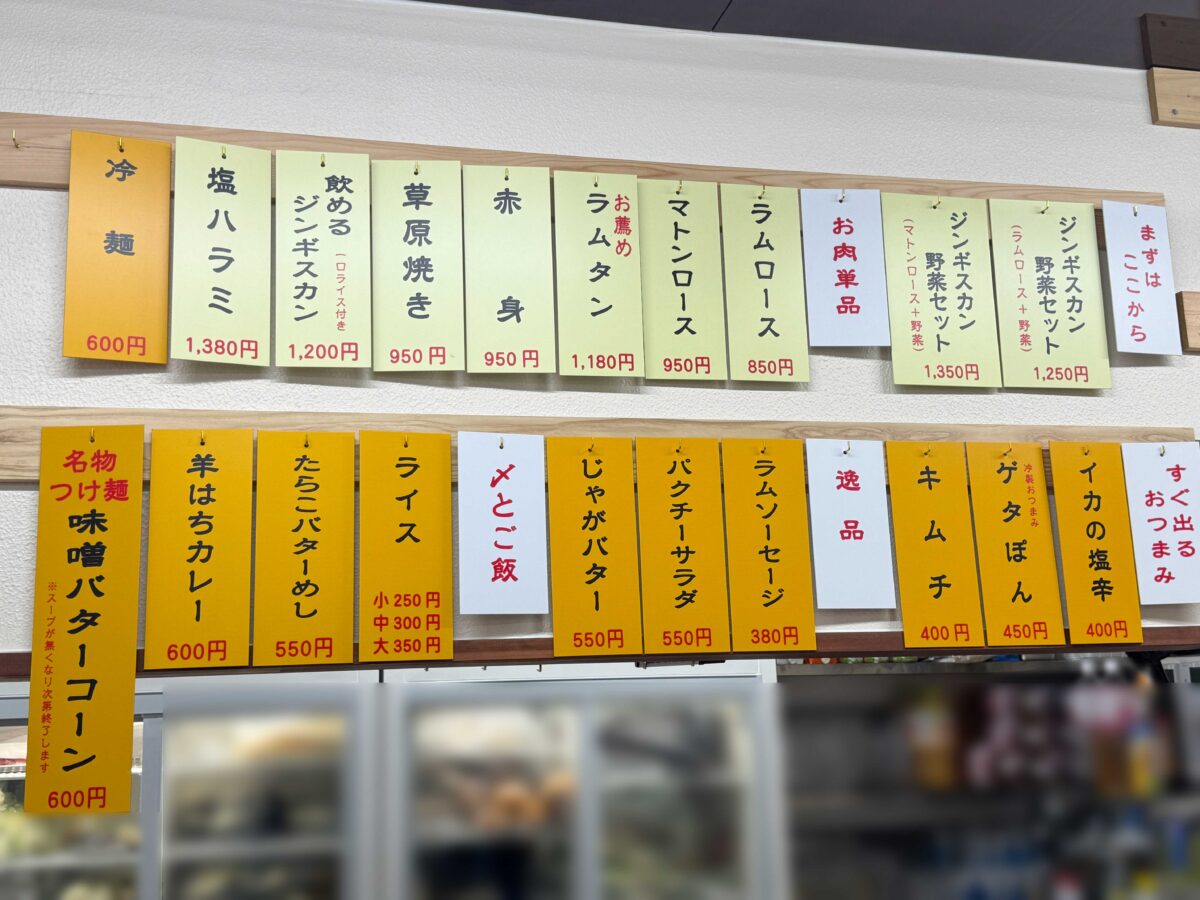 まずは
ここから
ジンギスカン
野菜セット
(ラムロース+野菜)
1,250円
ジンギスカン
野菜セット
(マトンロース+野菜)
1,350円
お肉単品
ラムロース
850円
マトンロース
950円
お薦め
ラムタン
1,180円
赤身
950円
草原焼き
950円
飲める
ジンギスカン
(ロライス付き)
1,200円
塩ハラミ
1,380円
冷麺
600円
すぐ出る
おつまみ
イカの塩辛
400円
冷製おつまみ
ゲタぽん
450円
キムチ
400円
逸品
ラムソーセージ
380円
パクチーサラダ
550円
じゃがバター
550円
〆とご飯
ライス
小250円
中300円
大350円
たらこバターめし
550円
羊はちカレー
600円
名物
つけ麺
味噌バターコーン
※スープが無くなり次第終了します
600円